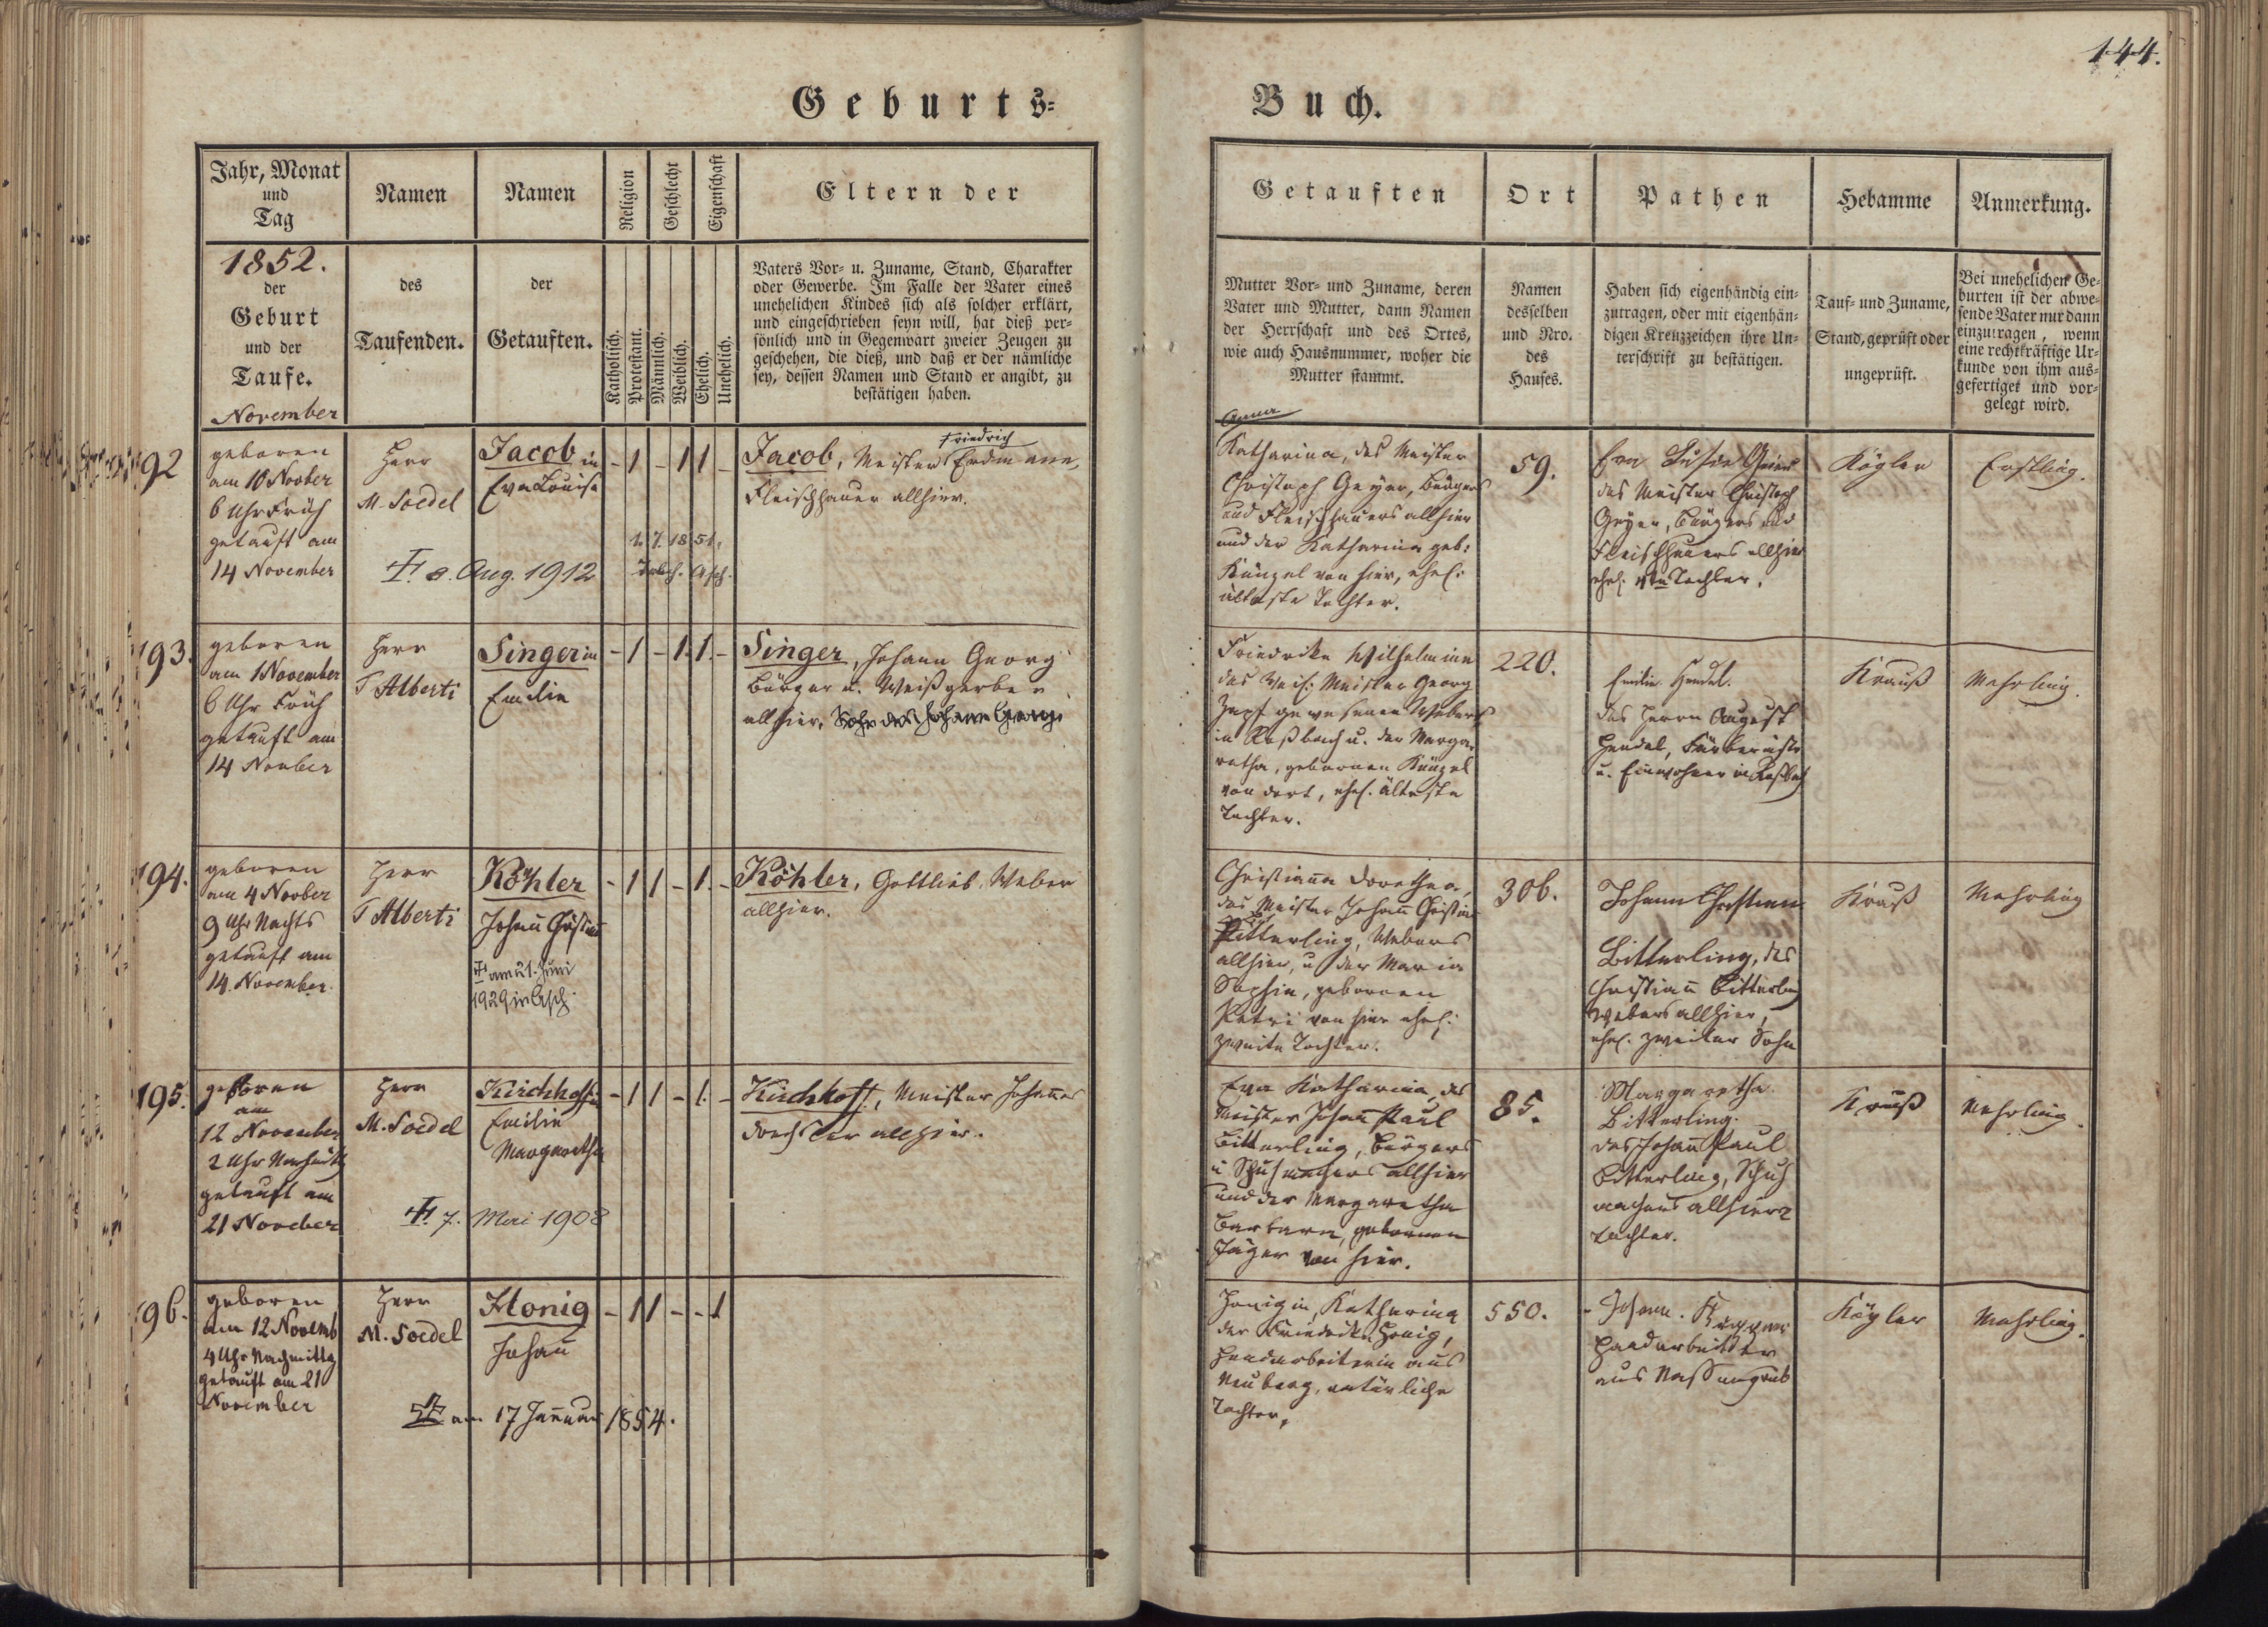 144.
Geburts=
Buch.
Jahr, Monat
und
Tag
Namen
Namen
Religion
Geschlecht
Eigenschaft
Eltern der
1852.
der
Geburt
und der
Taufe.
November
des
Taufenden.
der
Getauften.
Katholisch.
Protestant.
Männlich.
Weiblich.
Ehelich.
Unehelich.
Vaters Vor= u. Zuname, Stand, Charakter
oder Gewerbe. Im Falle der Vater eines
unehelichen Kindes sich als solcher erklärt,
und eingeschrieben seyn will, hat dieß per=
sönlich und in Gegenwart zweier Zeugen zu
geschehen, die dieß, und daß er der nämliche
sey, dessen Namen und Stand er angibt, zu
bestätigen haben.
Getauften
Ort
Pathen
Hebamme
Anmerkung.
Mutter Vor= und Zuname, deren
Vater und Mutter, dann Namen
der Herrschaft und des Ortes,
wie auch Hausnummer, woher die
Mutter stammt.
Namen
desselben
und Nro.
des
Hauses.
Haben sich eigenhändig ein=
zutragen, oder mit eigenhän=
digen Kreuzzeichen ihre Un=
terschrift zu bestätigen.
Tauf= und Zuname,
Stand, geprüft oder
ungeprüft.
Bei unehelichen Ge=
burten ist der abwe=
sende Vater nur dann
einzutragen, wenn
eine rechtkräftige Ur=
kunde von ihm aus=
gefertiget und vor=
gelegt wird.
192
geboren
am 10 Novber
6 Uhr Früh
getauft am
14 November
Herr
M. Soedel
Jacobin
Eva Louise
- 1 - 1 1 -
Jacob, Meister Friedrich Erdmann,
Fleischhauer allhier.
Aug. 1912
Anna
Katharina, des Meister
Christoph Geyer, Bürgers
und Fleischhauers allhier
und der Katharina geb:
Künzel von hier, ehel:
älteste Tochter.
59.
Eva
des Meister Christoph
Geyer, Bürgers und
Fleischhauers allhier
ehel. Tochter.
Kögler
Erstling.
193.
geboren
am 1 November
6 Uhr Früh
getauft am
14 November
Herr
T Alberti
Singerin
Emilie
- 1 - 1. 1. -
Singer, Johann Georg
Bürger u. Weißgerber
allhier, Sohn des Johann Georg
Friedrike Wilhelmine
des Meister Georg
Zapf gewesenen Webers
in Roßbach u. der Marga=
retha, gebornen Künzel
von dort, ehel. älteste
Tochter.
220.
Emilie Hendel.
des Herrn August
Hendel,
u. Einwohner in Roßbach
Krauß
Mehrling.
194.
geboren
am 4 Novber
9 Uhr Nachts
getauft am
14. November.
Herr
T Alberti
Köhler
Johann Christian
am 21. Juni
1929 in Asch.
- 1 1 - 1. -
Köhler, Gottlieb, Weber
allhier.
Christianna Dorothea,
des Meister Johann Christian
Pitterling, Webers
allhier, u der Maria
Sophia, gebornen
Petri von hier ehel:
zweite Tochter.
306.
Johann Christian
Bitterling, des
Christian Bitterling
Webers allhier,
ehel. zweiter Sohn
Krauß
Mehrling
195.
geboren
am
12 November
2 Uhr
getauft am
21 November
Herr
M. Soedel
Kirchhoffin
Emilie
Margaretha
7. Mai 1908
- 1 1 - 1. -
Kirchhoff, Meister Johann
Drechsler allhier.
Eva Katharina, des
Meister Johann Paul
Bitterling, Bürgers
u Schuhmachers allhier
und der Margaretha
Barbara, gebornen
Jäger von hier.
85.
Margaretha
Bitterling.
des Johann Paul
Bitterling, Schuh
machers allhier
Tochter.
Krauß
Mehrling.
196.
geboren
am 12 Novemb
4 Uhr Nachmittg
getauft am 21
November
Herr
M. Soedel
Honig
Johann
am 17 Januar 1854.
- 1 1 - - 1
Honigin, Katharina
der Friedrike Honig,
Handarbeiterin aus
Neuberg, natürliche
Tochter,
550.
Johann
Handarbeiter
aus Nassengrub
Kögler
Mehrling.